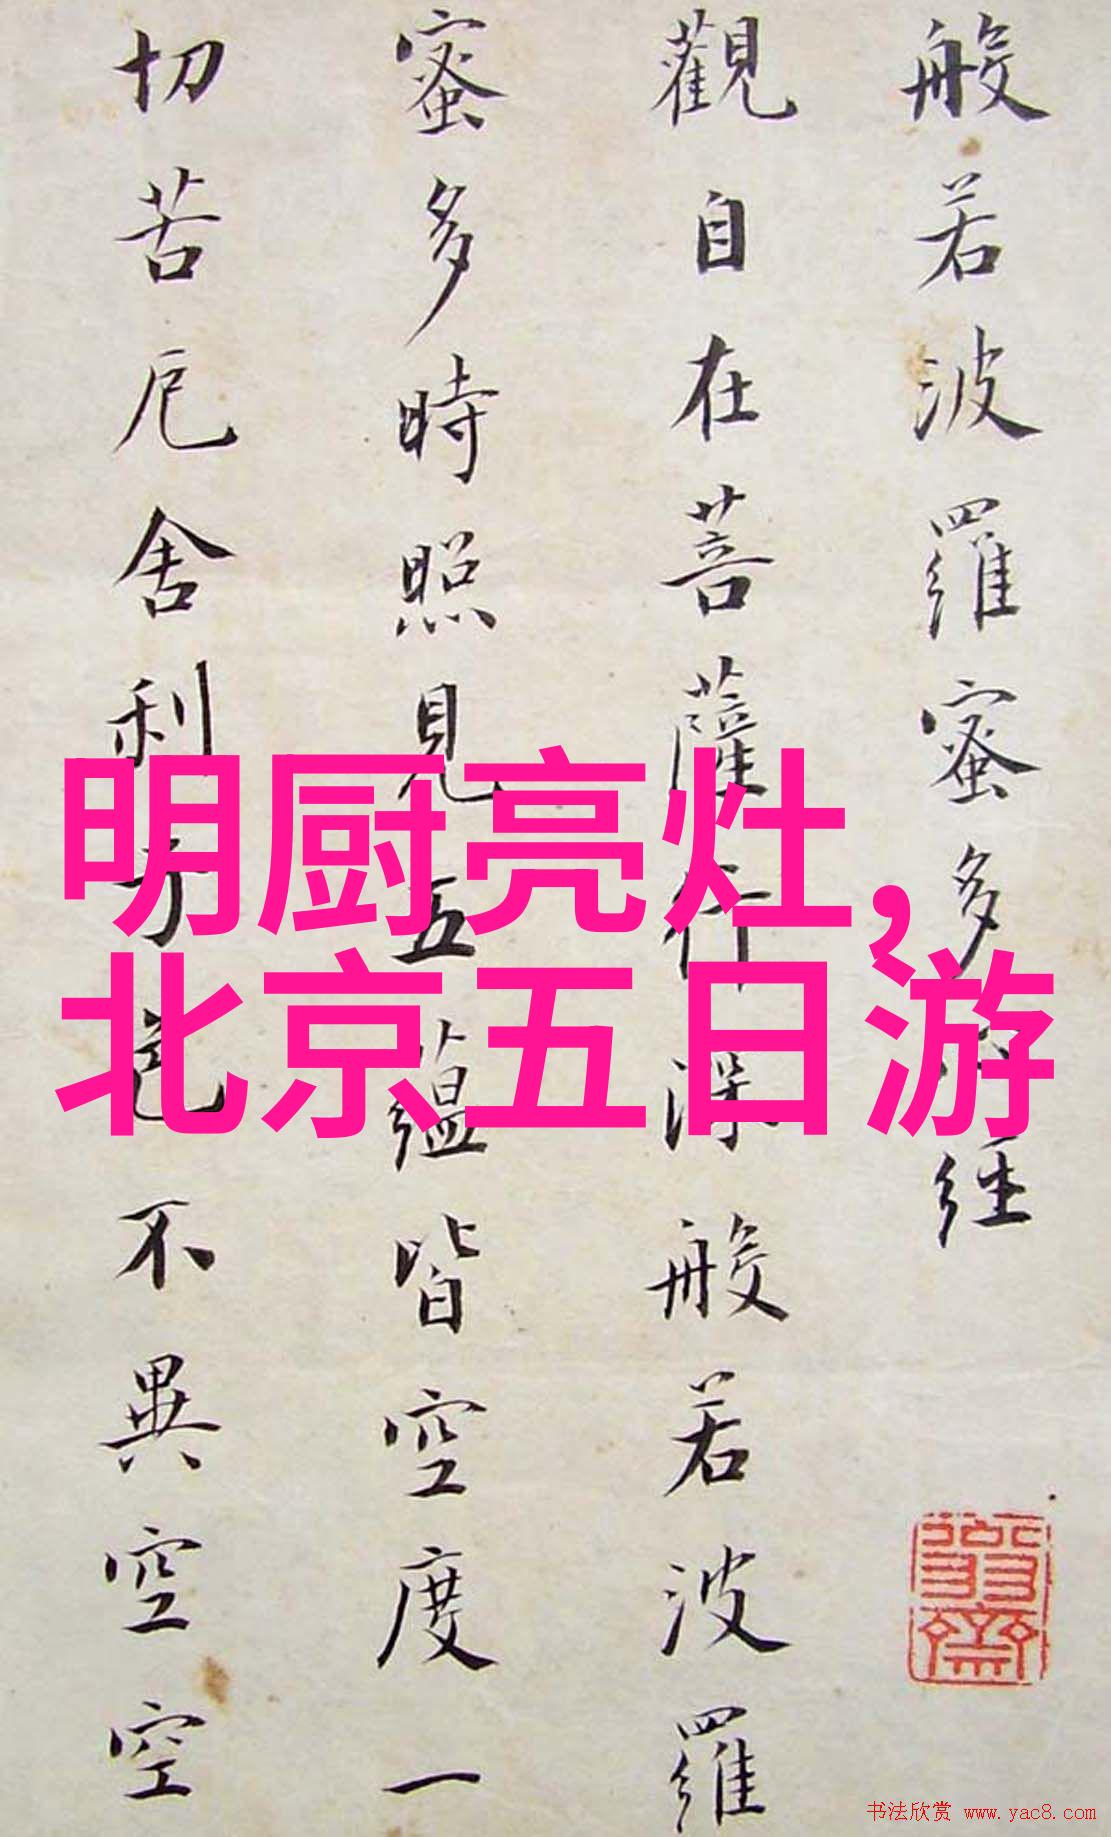 般若波羅蜜多心經
觀自在菩薩行深般若波羅
蜜多時照見五蘊皆空度一
切苦厄舍利子色不異空空
明厨亮灶,
北京五日游
书法欣赏 www.yac8.com